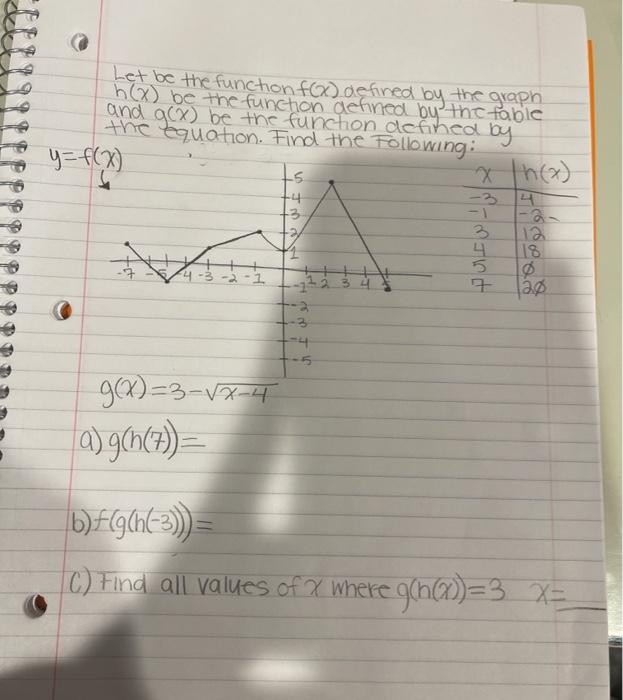 Let be the function f(x) defined by the graph
h(x) be the function defined by the table
and g(x) be the function defined by
the equation. Find the Following:
y=f(x)
x h(x)
-3 4
-1 -2
3 12
4 18
5 0
7 20
5
4
3
2
1
-7 -5 -4 -3 -2 -1 1 2 3 4 5
-1
-2
-3
-4
-5
g(x)=3-√x-4
a) g(h(7))=
b) f(g(h(-3)))=
C) Find all values of x where g(h(x))=3 x=__